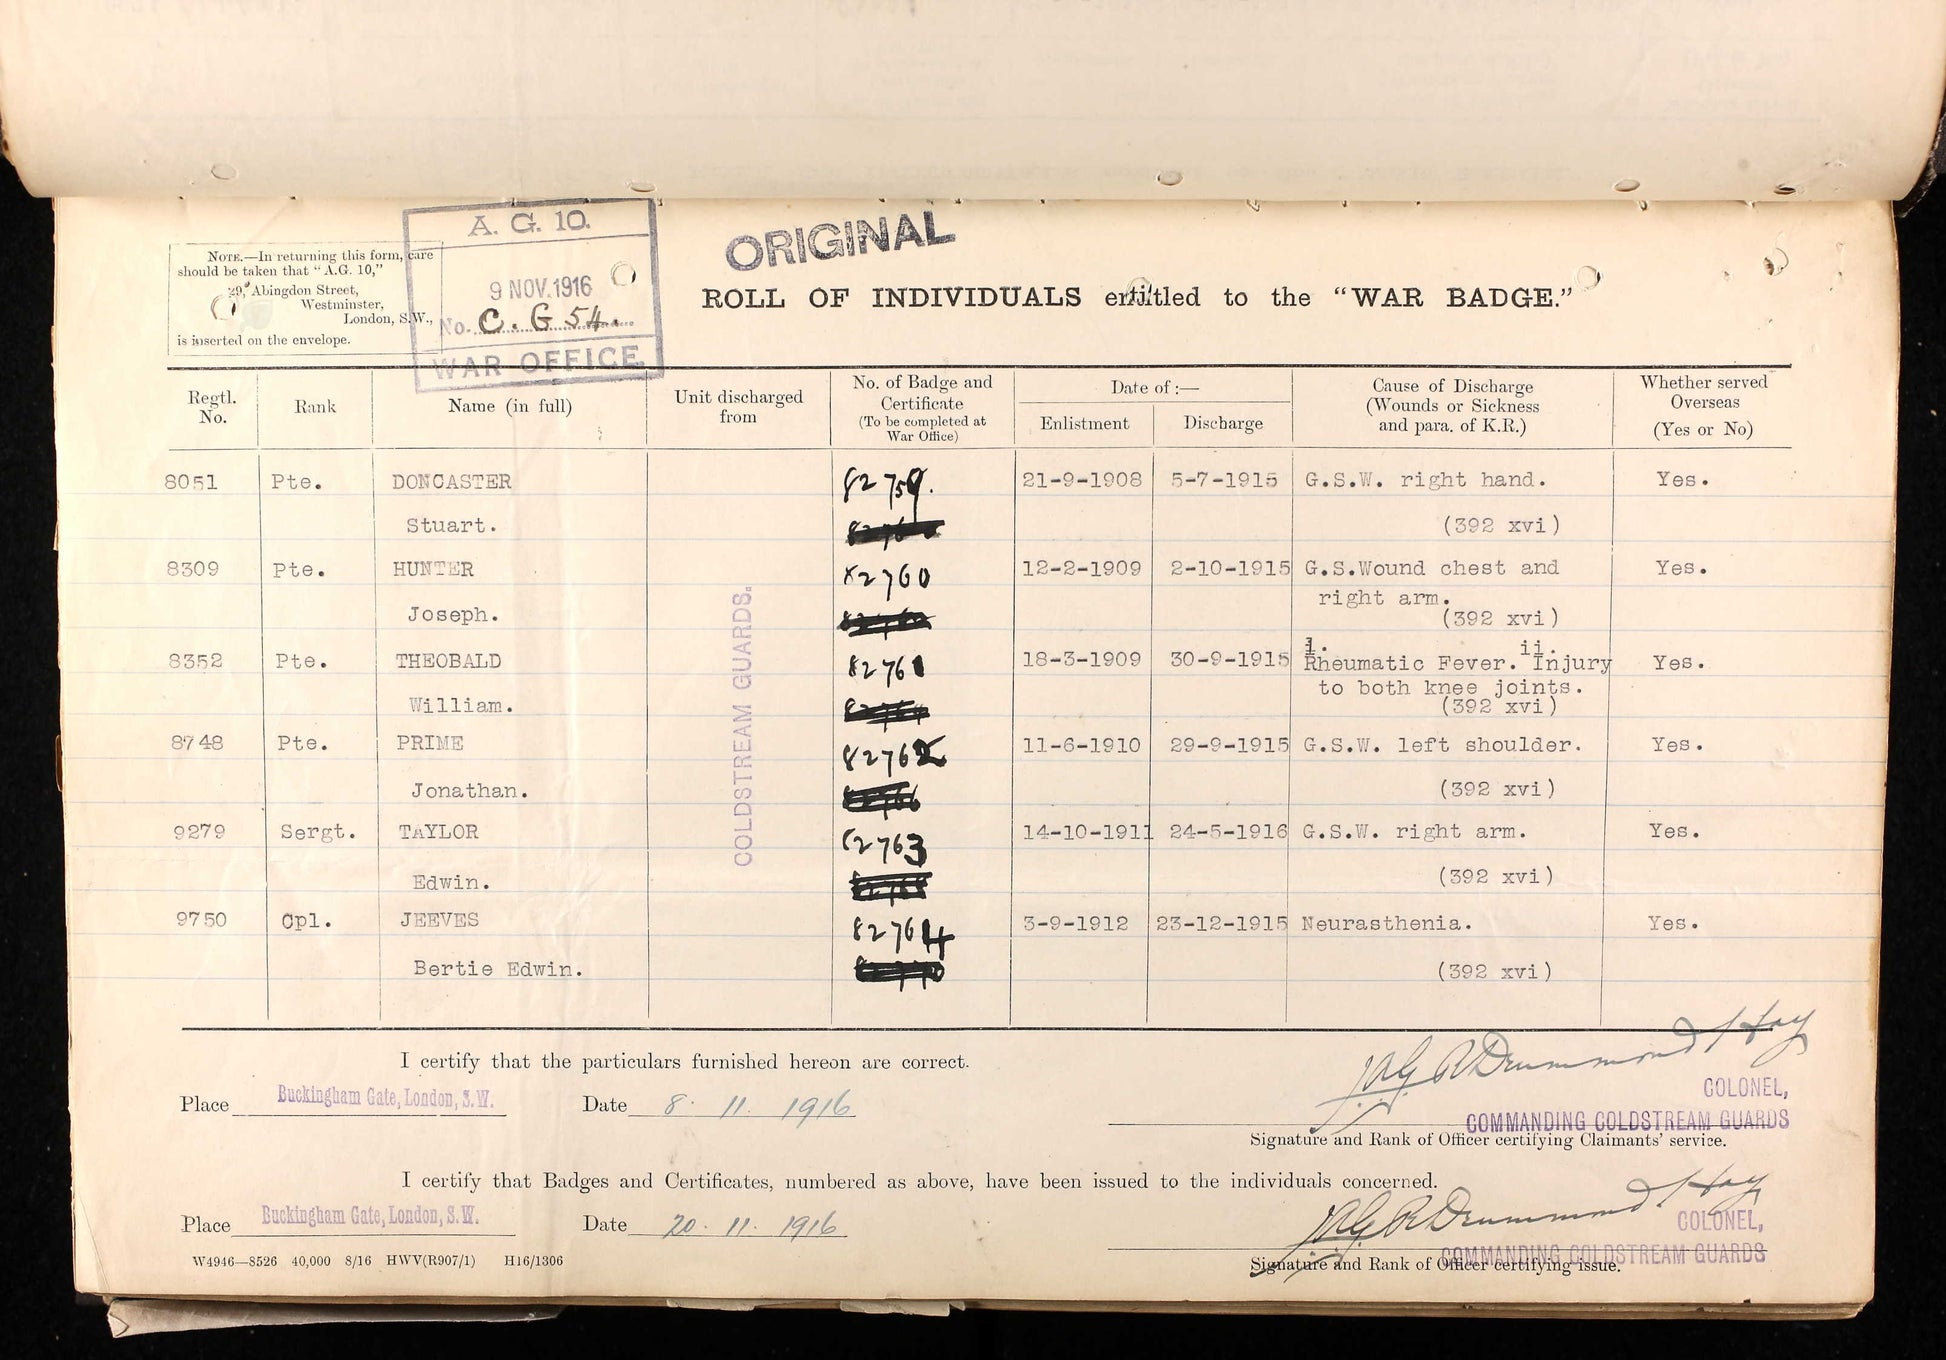 A. G. 10.
9 NOV. 1916
No. C. G 54.
WAR OFFICE.
ORIGINAL
NOTE.—In returning this form, care
should be taken that "A.G. 10,"
29, Abingdon Street,
Westminster,
London, S.W.,
is inserted on the envelope.
ROLL OF INDIVIDUALS entitled to the "WAR BADGE."
Regtl. No. Rank Name (in full) Unit discharged from No. of Badge and Certificate (To be completed at War Office) Date of :— Enlistment Discharge Cause of Discharge (Wounds or Sickness and para. of K.R.) Whether served Overseas (Yes or No)
8051 Pte. DONCASTER 82759. 21-9-1908 5-7-1915 G.S.W. right hand. Yes.
Stuart. (392 xvi)
8309 Pte. HUNTER 82760 12-2-1909 2-10-1915 G.S.Wound chest and Yes.
right arm.
Joseph. (392 xvi)
8352 Pte. THEOBALD 82761 18-3-1909 30-9-1915 1. Rheumatic Fever. ii. Injury Yes.
to both knee joints.
William. (392 xvi)
8748 Pte. PRIME 82762 11-6-1910 29-9-1915 G.S.W. left shoulder. Yes.
Jonathan. (392 xvi)
9279 Sergt. TAYLOR 82763 14-10-1911 24-5-1916 G.S.W. right arm. Yes.
Edwin. (392 xvi)
9750 Cpl. JEEVES 82764 3-9-1912 23-12-1915 Neurasthenia. Yes.
Bertie Edwin. (392 xvi)
COLDSTREAM GUARDS.
I certify that the particulars furnished hereon are correct.
Drummond Hay
COLONEL,
Place Buckingham Gate, London, S.W. Date 8. 11. 1916
COMMANDING COLDSTREAM GUARDS
Signature and Rank of Officer certifying Claimants' service.
I certify that Badges and Certificates, numbered as above, have been issued to the individuals concerned.
Drummond Hay
COLONEL,
Place Buckingham Gate, London, S.W. Date 20. 11. 1916
COMMANDING COLDSTREAM GUARDS
Signature and Rank of Officer certifying issue.
W4946—8526 40,000 8/16 HWV(R907/1) H16/1306